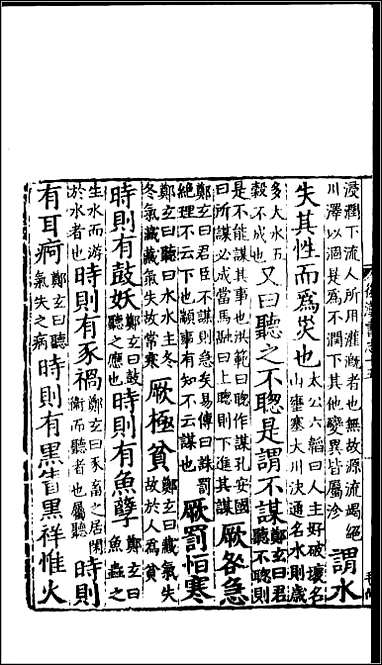 後漢書志十五
浸潤下流人所用灌漑者也無故源流竭絕川澤以涸是爲不潤下其他變異皆屬沴謂水
失其性而爲災也太公六韜曰人主好破壞名山壅塞大川決通名水則歲
多大水五穀不成也又曰聽之不聰是謂不謀鄭玄曰君聽不聰則
是不能謀其事也洪範曰聰作謀孔安國曰所謀必成當馬融曰上聰則下進其謀厥咎急
鄭玄曰君臣不謀則急矣易傳曰誅罰絕理不云下也顓事有知不云謀也厥罰恒寒
鄭玄曰聽曰水水主冬冬氣藏藏氣失故常寒厥極貧鄭玄曰藏氣失故於人爲貧
時則有鼓妖鄭玄曰鼓聽之應也時則有魚孽鄭玄曰魚蟲之
生水而游於水者也時則有豕禍鄭玄曰豕畜之居閑衞而聽者也屬聽時則
有耳痾鄭玄曰聽氣失之病時則有黑眚黑祥惟火